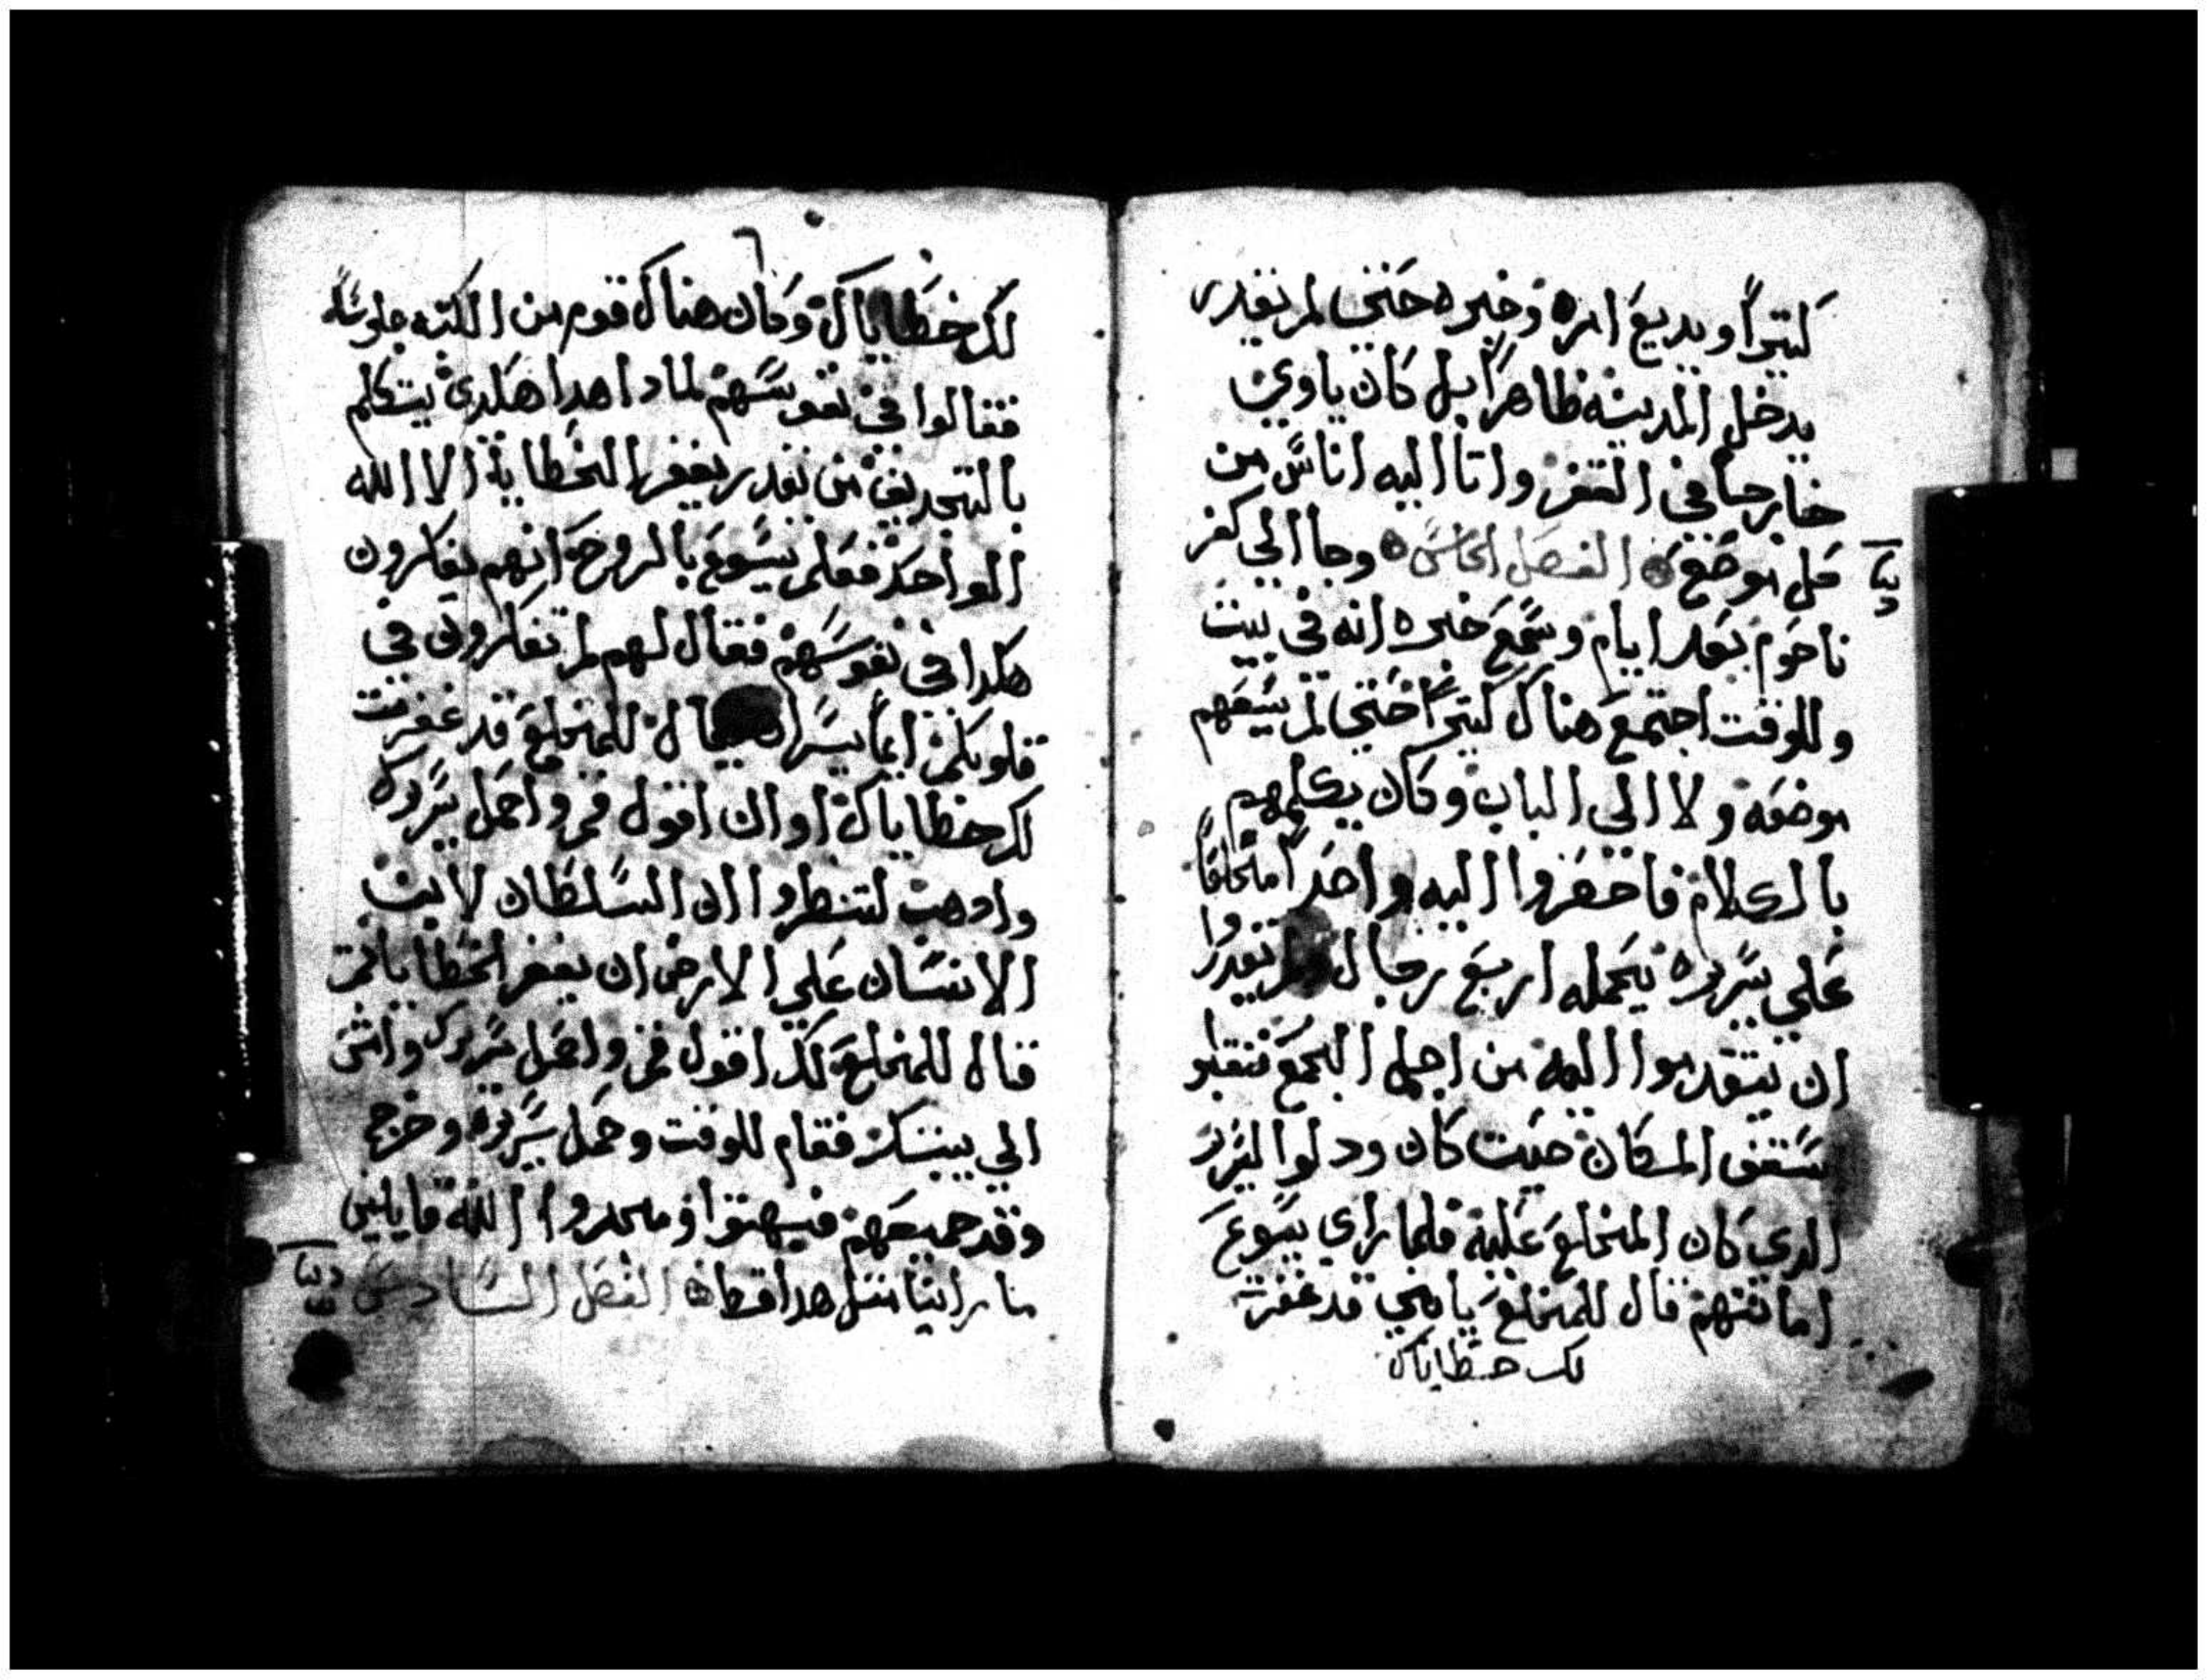 كتيراً ويديع امره وخبره حتي لم يقدر
يدخل المدينه ظاهراً بل كان ياوي
خارجاً في القفر واتا اليه اناس من
كل موضع الفصل الخامس وجا الي كفر
ناحوم بعد ايام وسمع خبره انه في بيت
وللوقت اجتمع هناك كتيراً حتي لم يسعهم
موضعه ولا الي الباب وكان يكلمهم
بالكلام فاحضروا اليه واحداً مخلعاً
علي سريره يحمله اربع رجال ولم يقدروا
ان يتقدموا اليه من اجل الجمع فنقبو
سقف المكان حيت كان ودلوا السرير
الدي كان المخلع عليه فلما راي يسوع
امانتهم قال للمخلع يابني قد غفرت
لك خطاياك
٦
لك خطاياك وكان هناك قوم من الكتبه جلوساً
فقالوا في نفوسهم لمادا هدا هكدي يتكلم
بالتجديف من يقدر يغفر الخطاية الا الله
الواحد فعلم يسوع بالروح انهم يفكرون
هكدا في نفوسهم فقال لهم لم تفكرون في
قلوبكم ايما يسر ان يقال للمخلع قد غفرت
لك خطاياك او ان اقول قم واحمل سريرك
وادهب لتنظروا ان السلطان لابن
الانسان علي الارض ان يغفر الخطايا تم
قال للمخلع لك اقول قم واحمل سريرك وامش
الي بيتك فقام للوقت وحمل سريره وخرج
وقد جميعهم فبهتوا ومجدوا الله قايلين
ما راينا متل هدا قط الفصل السادس